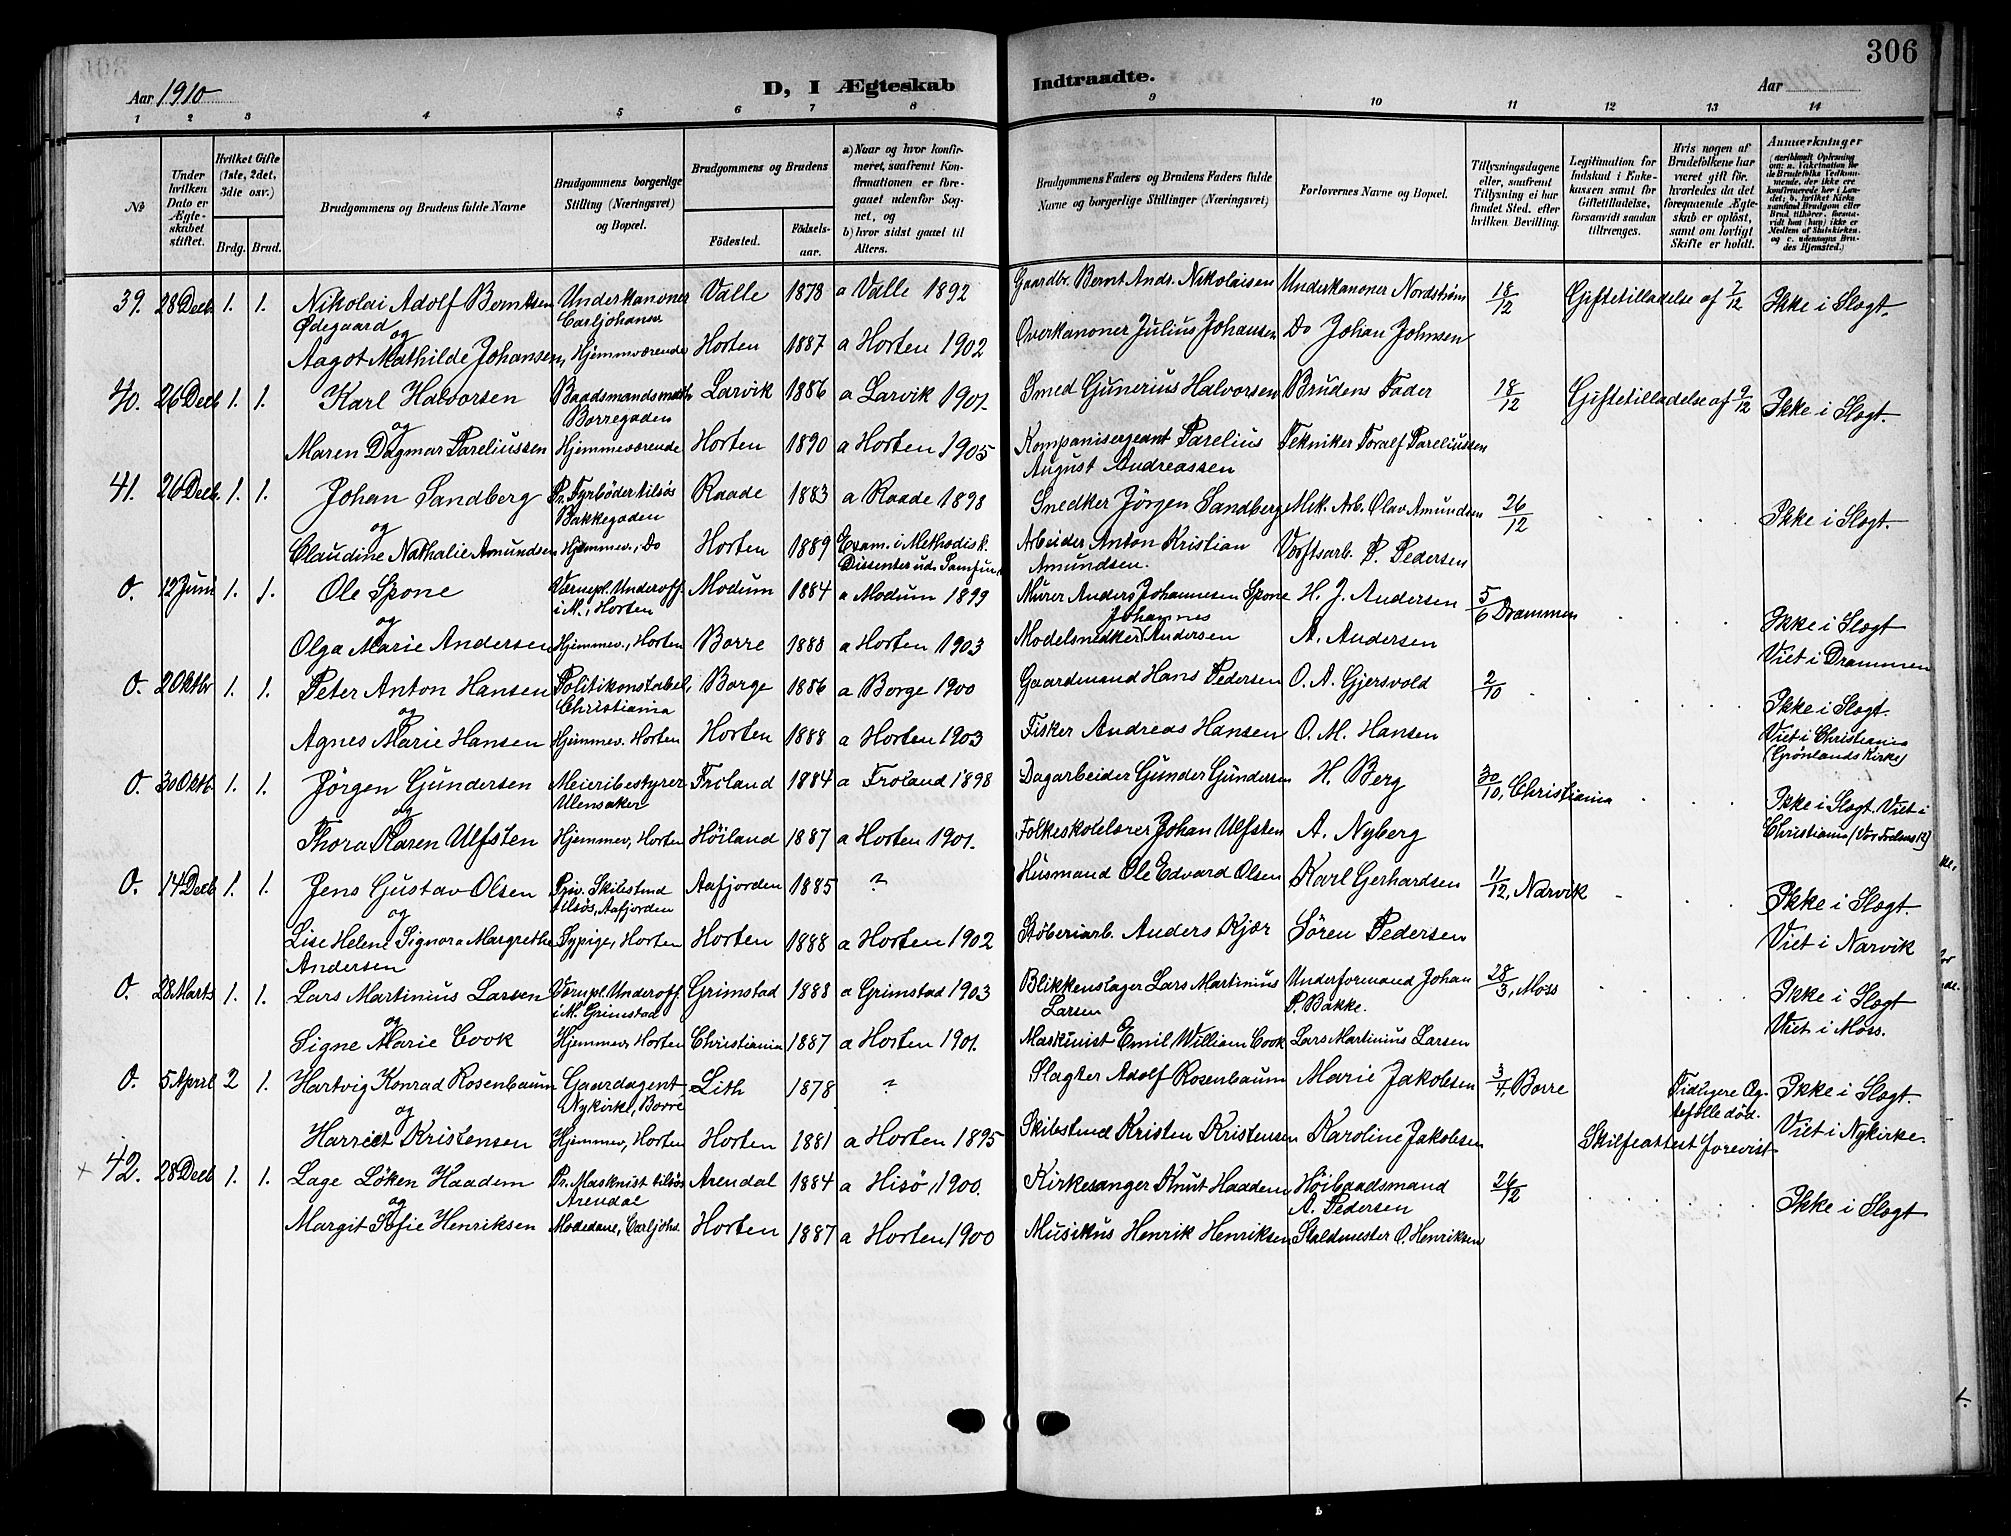 306
Aar 1910
D, I Ægteskab Indtraadte.
Aar
1 2 3 4 5 6 7 8 9 10 11 12 13 14
No
Under hvilken Dato er Ægteskabet stiftet.
Hvilket Gifte (1ste, 2det, 3die osv.)
Brdg. Brud.
Brudgommens og Brudens fulde Navne
Brudgommens borgerlige Stilling (Næringsvei) og Bopæl.
Brudgommens og Brudens
Fødested. Fødselsaar.
a) Naar og hvor konfirmeret, saafremt Konfirmationen er foregaaet udenfor Sognet, og
b) hvor sidst gaaet til Alters.
Brudgommens Faders og Brudens Faders fulde Navne og borgerlige Stillinger (Næringsvei)
Forlovernes Navne og Bopæl.
Tillysningsdagene eller, saafremt Tillysning ei har fundet Sted, efter hvilken Bevilling.
Legitimation for Indskud i Enkekassen samt for Giftetilladelse, forsaavidt saadan tiltrænges.
Hvis nogen af Brudefolkene har været gift før, hvorledes da det foregaaende Ægteskab er opløst, samt om lovligt Skifte er holdt.
Anmærkninger
39. 28 Decb. 1. 1. Nikolai Adolf Berntsen Underkanoner Valle 1878 a Valle 1892 Gaardbr. Bernt Ands. Nikolaisen Underkanoner Nordstrøm 18/12 Giftetilladelse af 7/12 Ikke i Slægt.
Ødegaard Carljohansv.
og
Aagot Mathilde Johansen, Hjemmeværende Horten 1887 a Horten 1902 Overkanoner Julius Johansen Do Johan Johnsen
40. 26 Decb 1. 1. Karl Halvorsen Baadsmandsmath Larvik 1886 a Larvik 1901. Smed Gunerius Halvorsen Brudens Fader 18/12 Giftetilladelse af 9/12 Ikke i Slægt.
og Borregaden
Maren Dagmar Pareliussen Hjemmeværende Horten 1890 a Horten 1905 Kompanisergeant Parelius Tekniker Toralf Pareliussen
August Andreassen
41. 26 Decb. 1. 1. Johan Sandberg Pr. Fyrbøder tilsøs Raade 1883 a Raade 1898 Snedker Jörgen Sandberg Mek. Arb. Olav Amundsen 26/12 Ikke i Slægt.
og Bakkegaden
Claudine Nathalie Amundsen Hjemmev., Do Horten 1889 Exam. i Methodisk. Arbeider Anton Kristian Værftsarb. P. Pedersen
Dissenter ud. Samfun. Amundsen.
O. 12 Juni 1. 1. Ole Spone Værnepl. Underoff. Modum 1884 a Modum 1899 Murer Anders Johannesen Spone H. J. Andersen 5/6 Drammen Ikke i Slægt
og i M., Horten Johannes
Olga Marie Andersen Hjemmev., Horten Borre 1888 a Horten 1903 Modelsnedker Andersen A. Andersen Viet i Drammen
O. 2 Oktbr 1. 1. Peter Anton Hansen Politikonstabel, Borge 1886 a Borge 1900 Gaardmand Hans Pedersen O. A. Gjersvold 2/10 Ikke i Slægt.
og Christiania
Agnes Marie Hansen Hjemmev. Horten Horten 1888 a Horten 1903 Fisker Andreas Hansen O. M. Hansen Viet i Christiania
(Grønlands Kirke)
O. 30 Oktb. 1. 1. Jørgen Gundersen Meieribestyrer Froland 1884 a Froland 1898 Dagarbeider Gunder Gundersen H. Berg 30/10, Christiania Ikke i Slægt. Viet i
og Ulensaker
Thora Karen Ulfsten Hjemmev, Horten Höiland 1887 a Horten 1901. Folkeskolelærer Johan Ulfsten A. Nyberg Christiania (Vor Frelsers K)
O. 14 Decb 1. 1. Jens Gustav Olsen Priv. Skibstmd Aafjorden 1885 ? Husmand Ole Edvard Olsen Karl Gerhardsen 11/12, Narvik Ikke i Slægt.
og tilsøs, Aafjorden
Lise Helene Signora Margrethe Sypige, Horten Horten 1888 a Horten 1902 Støberiarb. Anders Kjær Sören Pedersen Viet i Narvik
Andersen
O. 28 Marts 1. 1. Lars Martinius Larsen Værnepl. Underoff. Grimstad 1888 a Grimstad 1903 Blikkenslager Lars Martinius Underformand Johan 28/3, Moss Ikke i Slægt
og i M. Grimstad Larsen P. Bakke.
Signe Marie Cook Hjemmev, Horten Christiania 1887 a Horten 1901. Maskinist Emil William Cook Lars Martinius Larsen Viet i Moss.
O. 5 April 2 1. Hartvig Konrad Rosenbaum Gaardagent Lith 1878 ? Slagter Adolf Rosenbaum Marie Jakobsen 3/4, Borre Tidligere Æg- Ikke i Slægt.
og Nykirke, Borre tefælle død.
Harriet Kristensen Hjemmev, Horten Horten 1881 a Horten 1895 Skibstmd Kristen Kristensen Karoline Jakobsen Skifteattest forevist Viet i Nykirke.
× 42. 28 Decb 1. 1. Lage Löken Haadem Pr. Maskinist tilsøs Arendal 1884 a Hisö, 1900. Kirkesanger Knut Haadem Høibaadsmand 26/12 Ikke i Slægt
og Arendal A. Pedersen
Margit Sofie Henriksen Modedame, Carljohs. Horten 1887 a Horten 1900 Musikus Henrik Henriksen Staldmester O. Henriksen